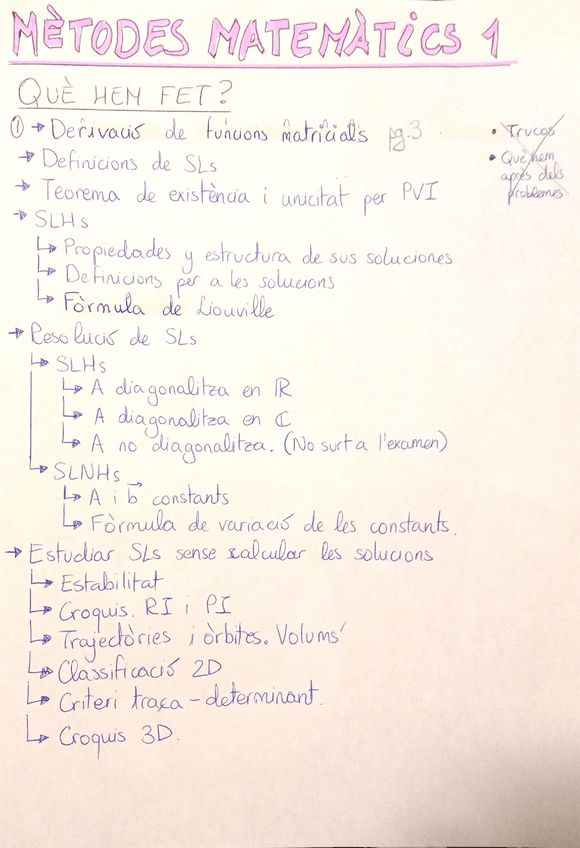 MÈTODES MATEMÀTICS 1
QUÈ HEM FET?
① → Derivació de funcions matricials pg.3
• Trucos
• Què hem
après dels
problemes
→ Definicions de SLs
→ Teorema de existència i unicitat per PVI
→ SLHs
↳ Propiedades y estructura de sus soluciones
↳ Definicions per a les solucions
↳ Fòrmula de Liouville
→ Resolució de SLs
↳ SLHs
↳ A diagonalitza en ℝ
↳ A diagonalitza en ℂ
↳ A no diagonalitza. (No surt a l'examen)
↳ SLNHs
↳ A i b⃗ constants
↳ Fòrmula de variació de les constants.
→ Estudiar SLs sense calcular les solucions
↳ Estabilitat
↳ Croquis. RI i PI
↳ Trajectòries i òrbites. Volums
↳ Classificació 2D
↳ Criteri traça-determinant.
↳ Croquis 3D.